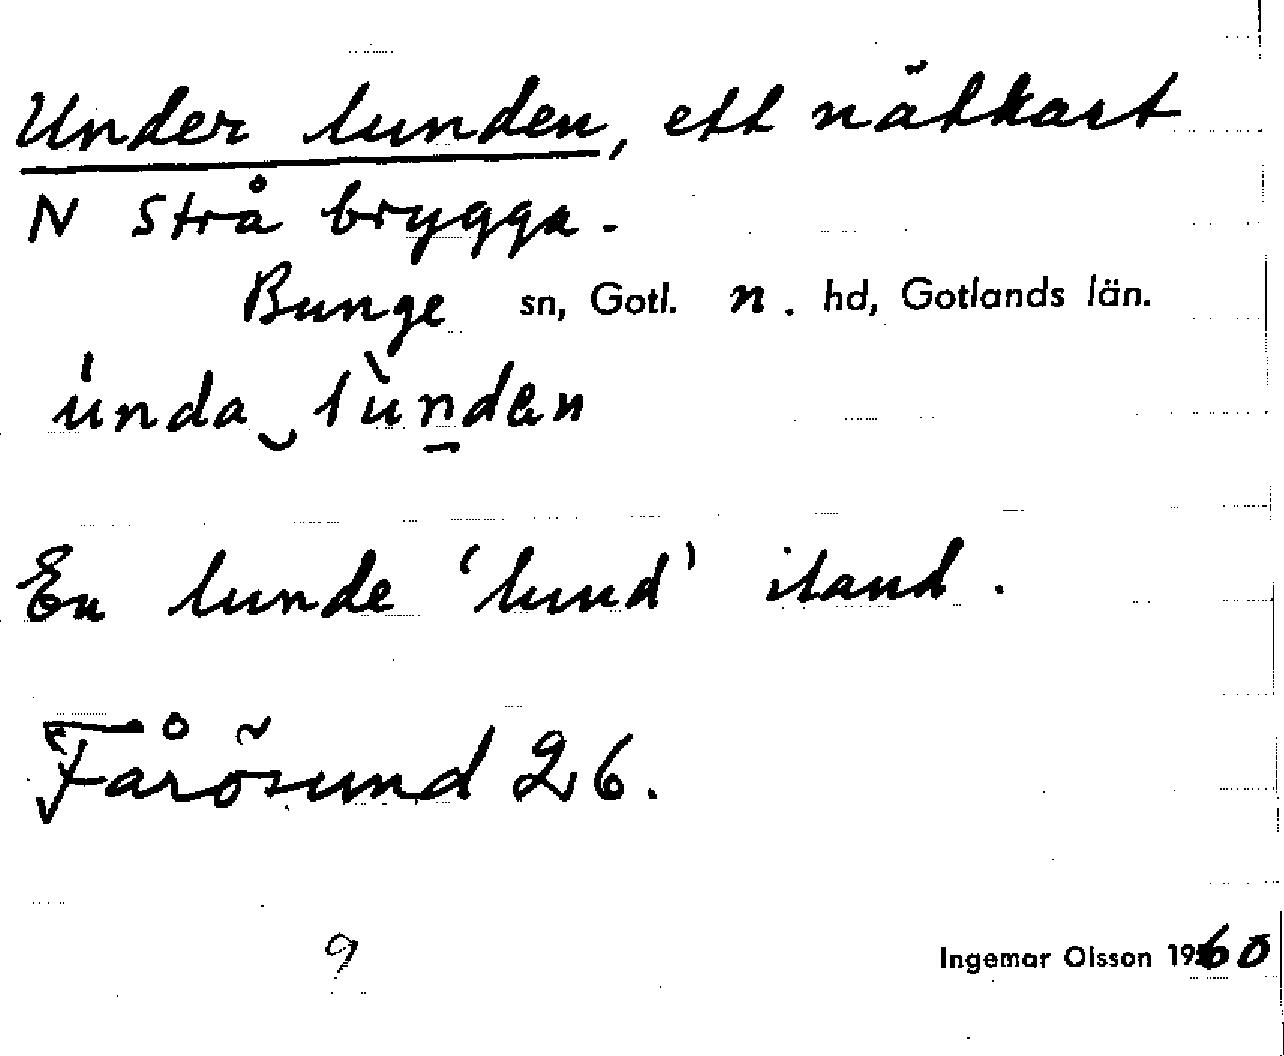 Under lunden, ett nätkast
N Strå brygga.
Bunge sn, Gotl. n. hd, Gotlands län.
únda‿lùn̲dän
En lunde 'lund' iland.
Fårösund 26.
9
Ingemar Olsson 1960